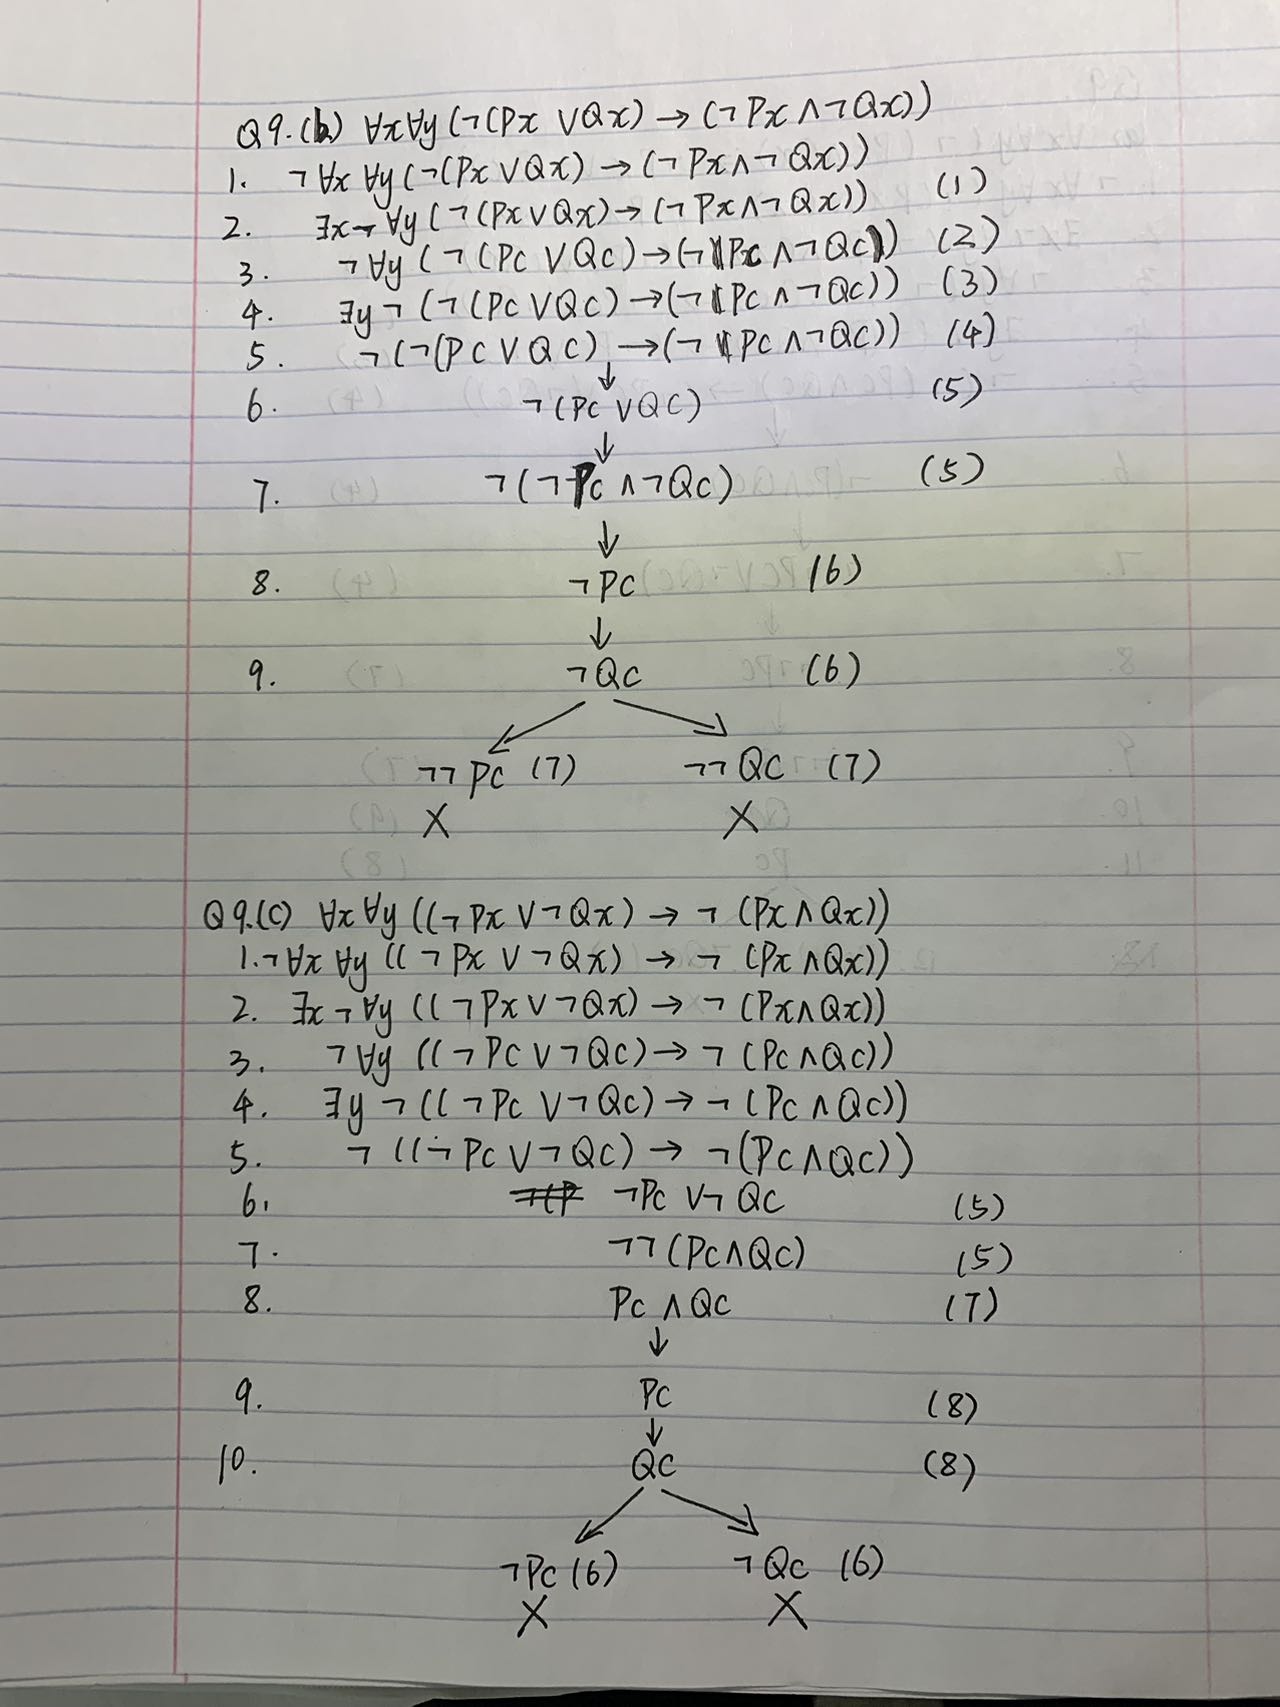 Q9.(b) ∀x∀y(¬(Px ∨Qx) → (¬Px ∧¬Qx))
1. ¬∀x ∀y(¬(Px ∨Qx) → (¬Px∧¬Qx))
2. ∃x¬∀y(¬(Px∨Qx)→(¬Px∧¬Qx)) (1)
3. ¬∀y(¬(Pc ∨Qc)→(¬Pc ∧¬Qc)) (2)
4. ∃y¬(¬(Pc∨Qc)→(¬Pc∧¬Qc)) (3)
5. ¬(¬(Pc∨Qc)→(¬Pc∧¬Qc)) (4)
6. ¬(Pc∨Qc) (5)
7. ¬(¬Pc∧¬Qc) (5)
8. ¬Pc (6)
9. ¬Qc (6)
¬¬Pc (7) ¬¬Qc (7)
X X
Q9.(c) ∀x∀y((¬Px∨¬Qx) → ¬(Px∧Qx))
1.¬∀x ∀y((¬Px∨¬Qx) → ¬(Px∧Qx))
2. ∃x¬∀y((¬Px∨¬Qx) → ¬(Px∧Qx))
3. ¬∀y((¬Pc∨¬Qc)→¬(Pc∧Qc))
4. ∃y¬((¬Pc∨¬Qc)→¬(Pc∧Qc))
5. ¬((¬Pc∨¬Qc)→¬(Pc∧Qc))
6. ¬Pc∨¬Qc (5)
7. ¬¬(Pc∧Qc) (5)
8. Pc∧Qc (7)
9. Pc (8)
10. Qc (8)
¬Pc (6) ¬Qc (6)
X X